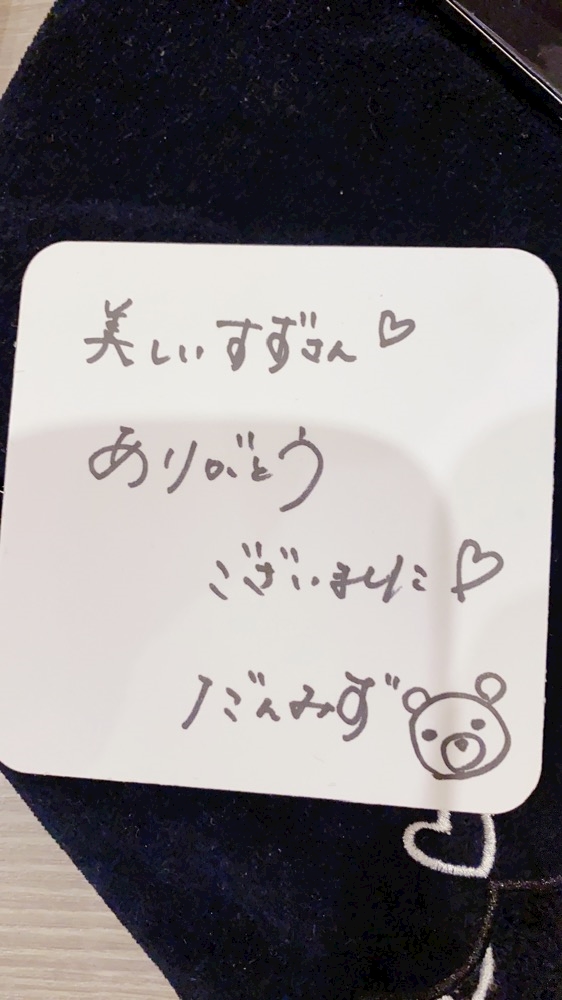 美しいすずさん♡
ありがとう
ございました♡
だんみつ゛